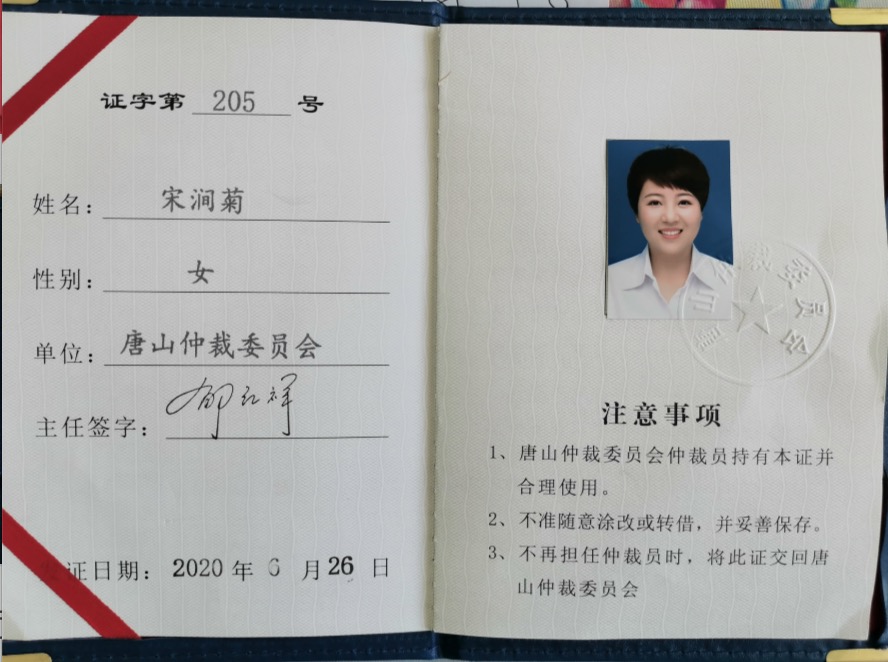 证字第 205 号
姓名：宋涧菊
性别：女
单位：唐山仲裁委员会
主任签字：
发证日期：2020 年 6 月 26 日
注意事项
1、唐山仲裁委员会仲裁员持有本证并
合理使用。
2、不准随意涂改或转借，并妥善保存。
3、不再担任仲裁员时，将此证交回唐
山仲裁委员会